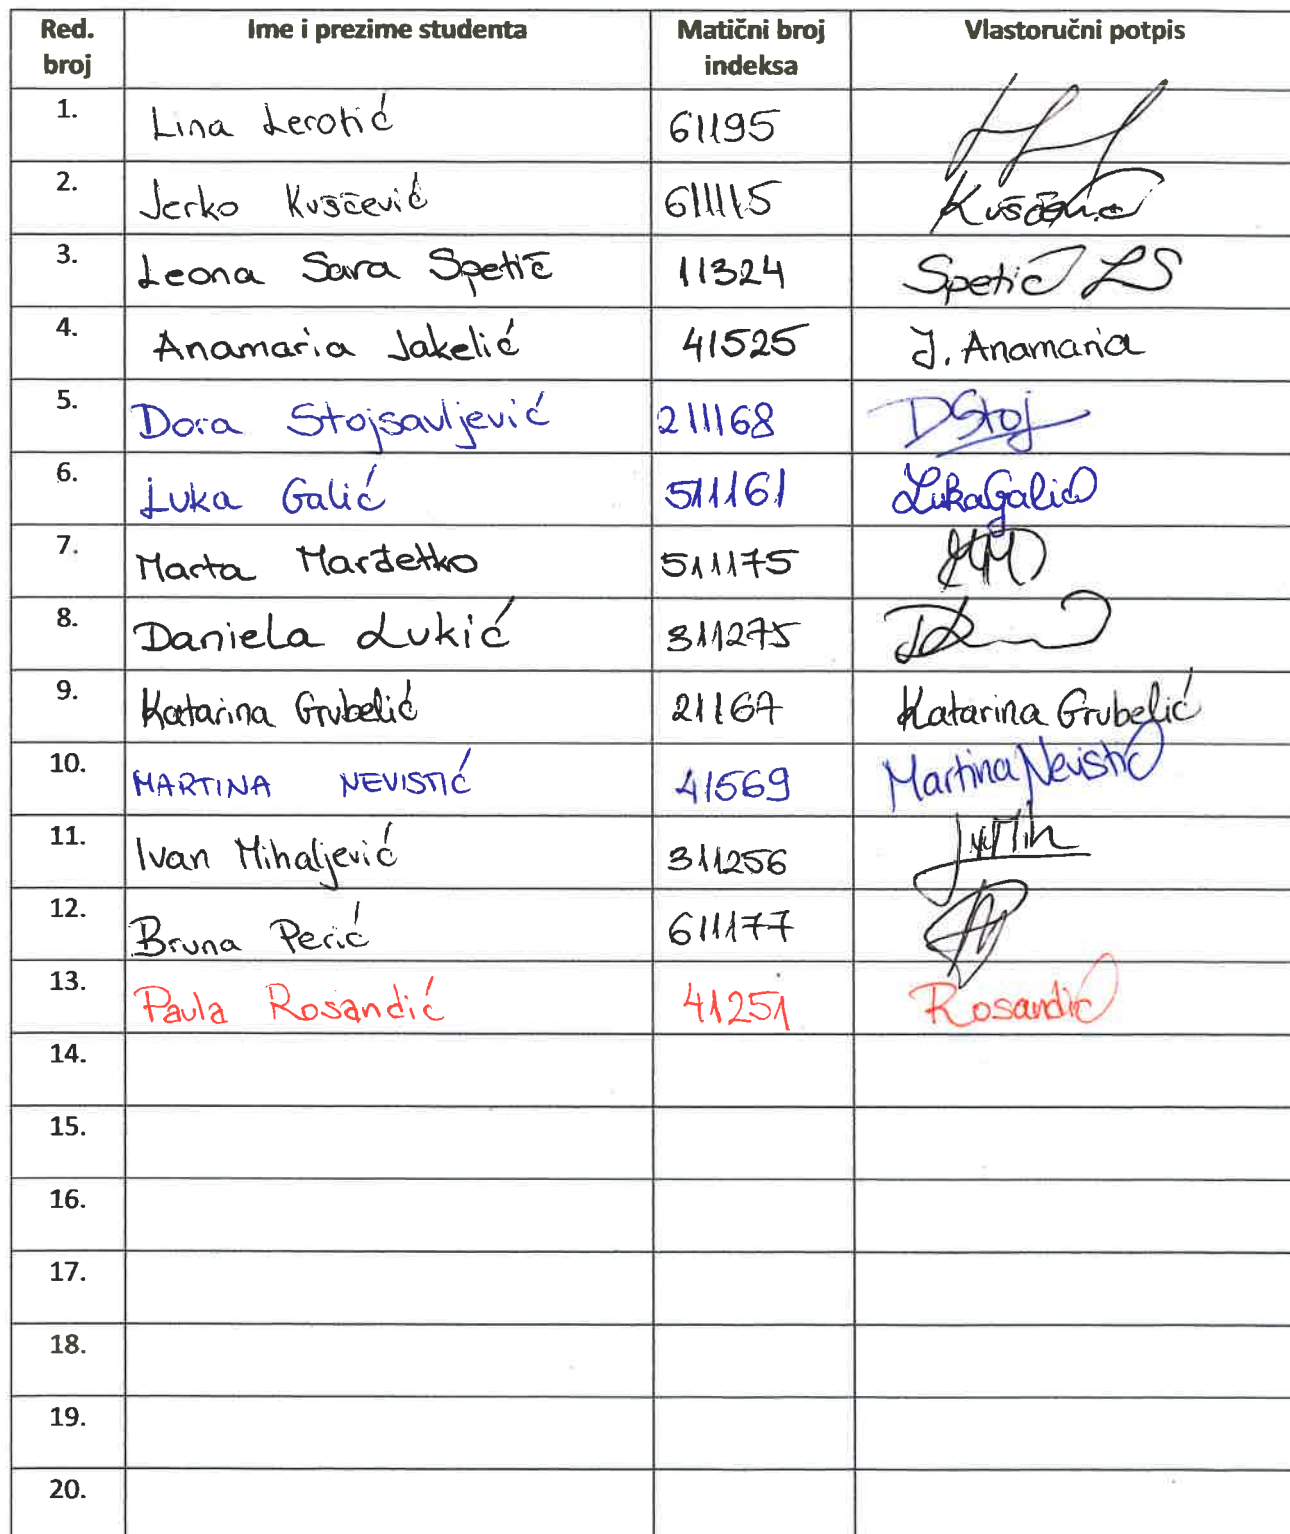 Red. broj Ime i prezime studenta Matični broj indeksa Vlastoručni potpis
1. Lina Lerotić 61195
2. Jerko Kuščević 611115 Kuščević
3. Leona Sara Spetič 11324 Spetič LS
4. Anamaria Jakelić 41525 J. Anamaria
5. Dora Stojsavljević 211168 DStoj
6. Luka Galić 511161 Luka Galić
7. Marta Marđetko 511175 MM
8. Daniela Lukić 311275
9. Katarina Grubelić 21167 Katarina Grubelić
10. MARTINA NEVISTIĆ 41569 Martina Nevistić
11. Ivan Mihaljević 311256
12. Bruna Perić 611177
13. Paula Rosandić 41251 Rosandić
14.
15.
16.
17.
18.
19.
20.